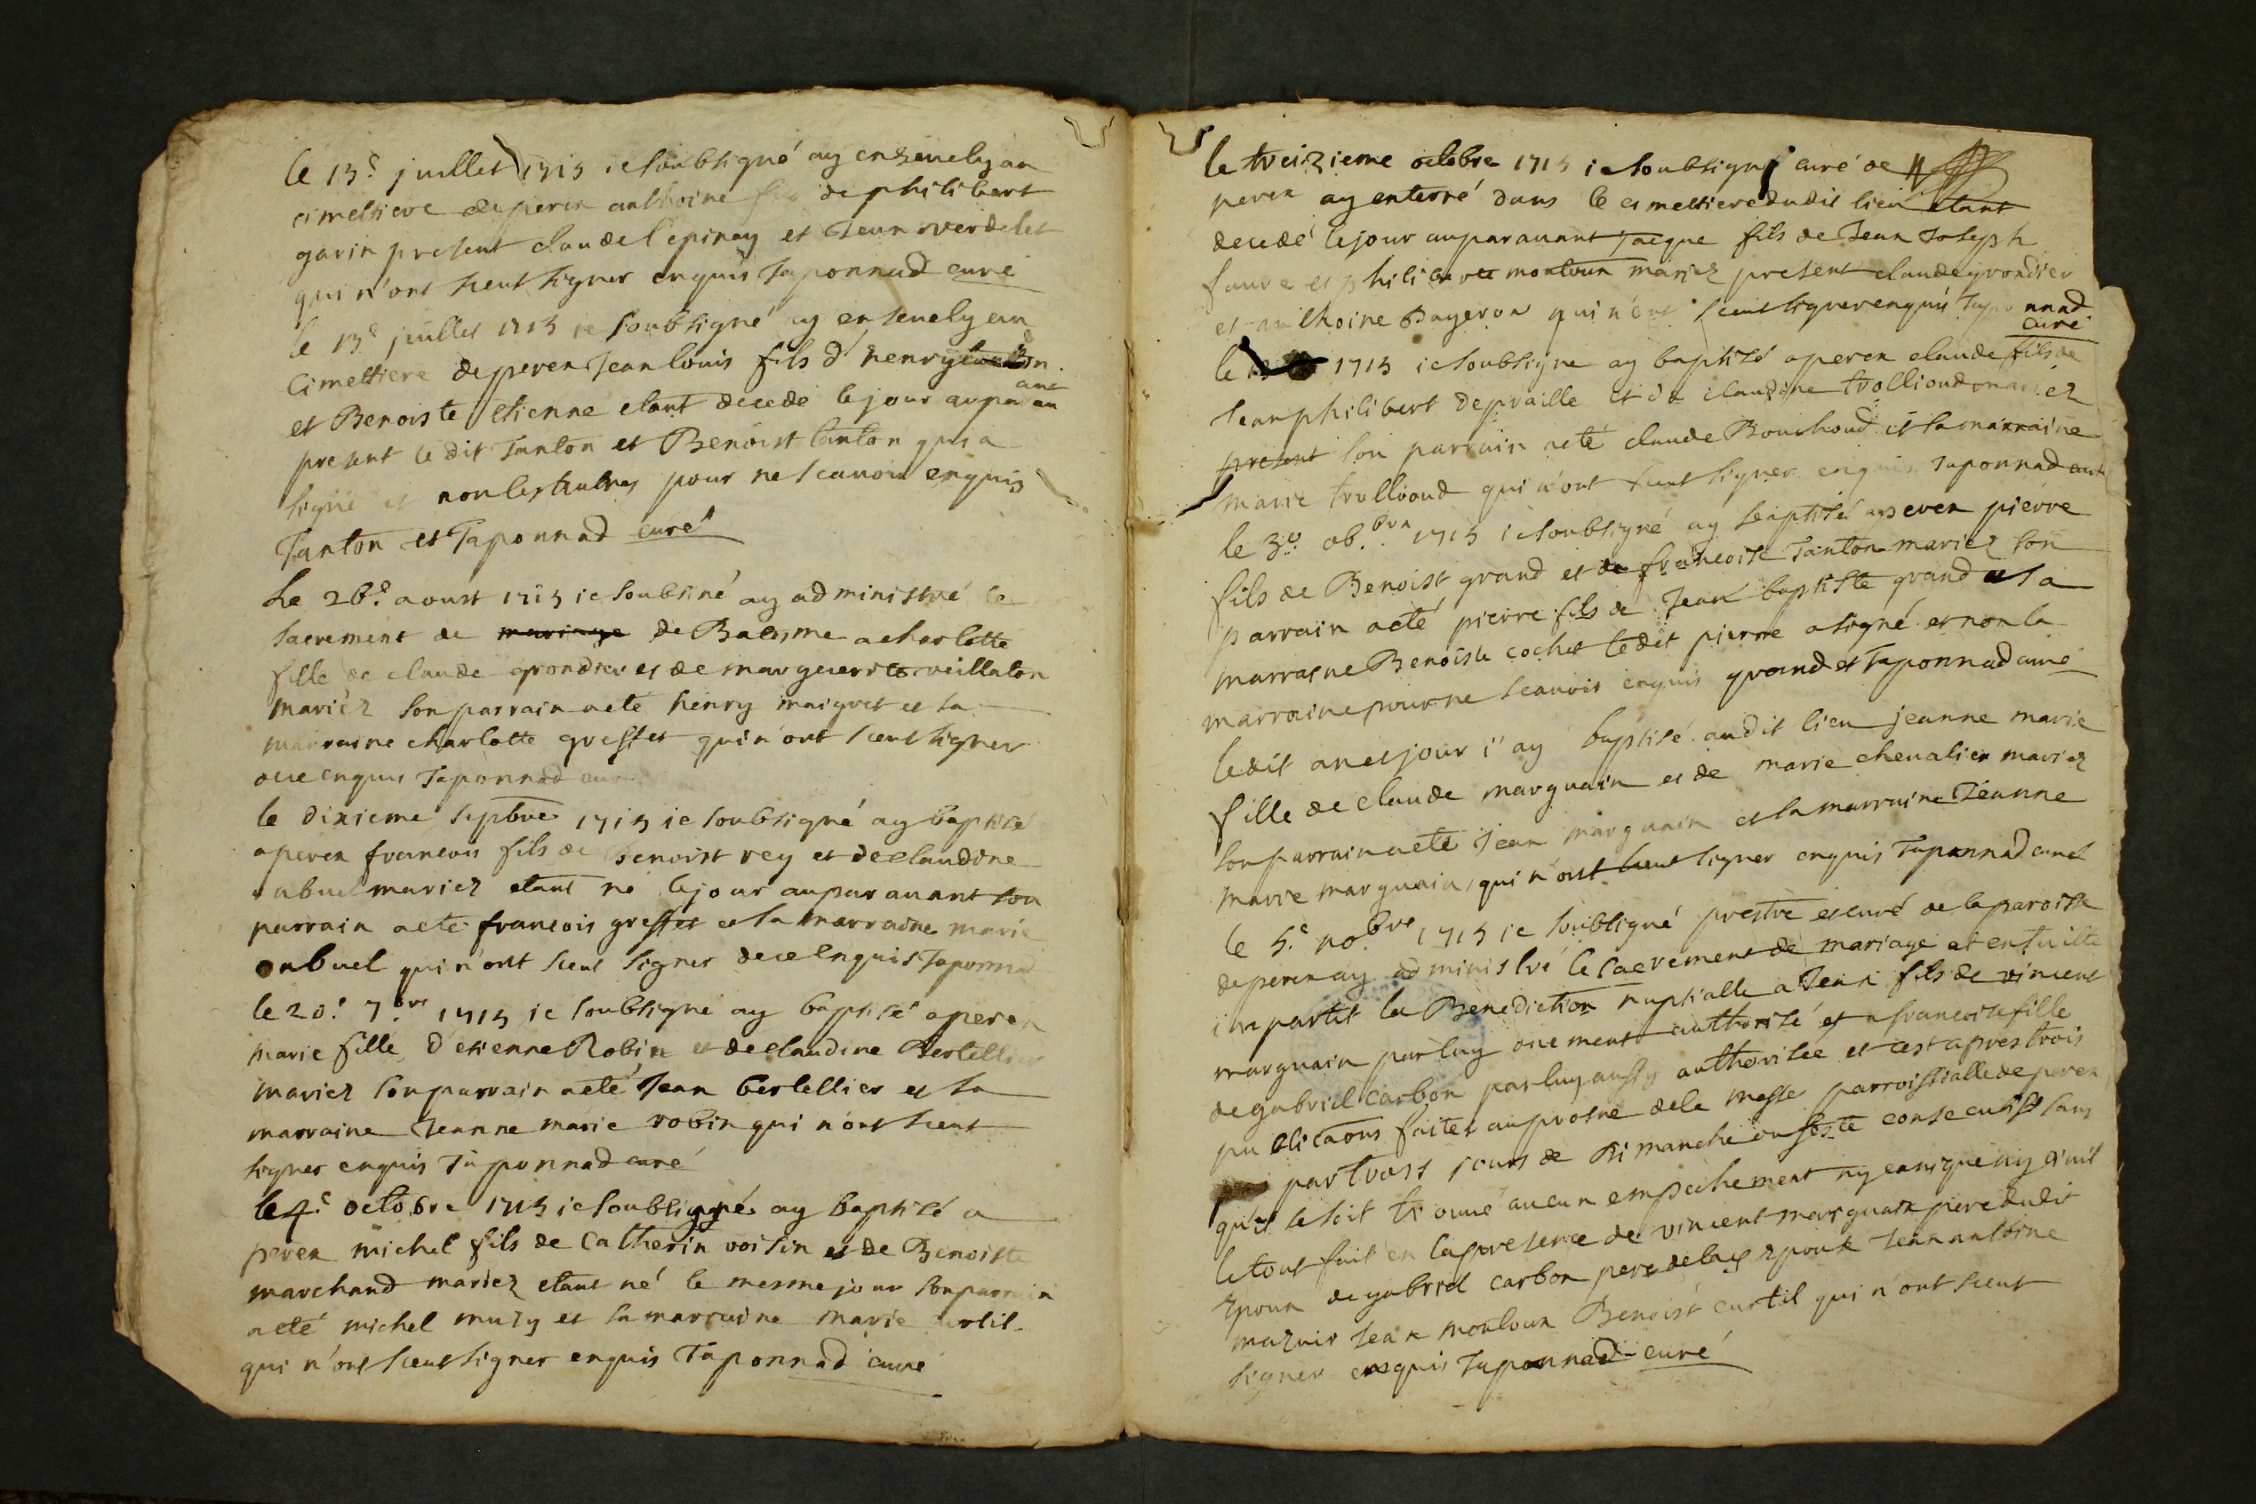 le 13e juillet 1713 ie soubsigné ay enseuely au
cimettiere de peren anthoine fils de philibert
garin present claude l'epinay et Jean verdelet
qui n'ont sceut signer enquis Taponnad curé
le 13e juillet 1713 ie soubsigné ay enseuely au
Cimettiere de peren Jean louis fils d'henry tanton
et Benoiste etienne etant decede le jour aupar auant
present ledit Tanton et Benoist tanton qui a
signé et non les autres pour ne scauoir enquis
Tanton et Taponnad curé
Le 26e aoust 1713 ie soubsiné ay administré le
sacrement de mariage de Batisme a charlotte
fille de claude grondier et de marguerite veillaton
mariéz son parrain a eté henry maigret et sa
marraine charlotte gresset qui n'ont sceut signer
de ce enquis Taponnad curé
le dixieme sepbre 1713 ie soubsigné ay baptisé
a peren francois fils de Benoist rey et de claudine
mariez etant né le jour auparauant son
parrain a eté francois gresset et sa marraine marie
onbuel qui n'ont sceut signer de ce enquis Taponnad
le 20e 7bre 1713 ie soubsigne ay baptisé a peren
marie fille d'etienne Robin et de claudine Bertellier
mariez son parrain a eté Jean bertellier et sa
marraine Jeanne marie robin qui n'ont sceut
signer enquis Taponnad curé
le 4e octobre 1713 ie soubsigné ay baptisé a
peren michel fils de Catherin voisin et de Benoiste
marchand mariez etant né le mesme jour son parrain
a eté michel muzy et sa marraine marie curtil
qui n'ont sceut signer enquis Taponnad curé
le treizieme octobre 1713 ie soubsigné curé de
peren ay enterré dans le cimettiere dudit lieu etant
decedé le jour auparauant jacque fils de Jean Joseph
faure et philiberte montoux mariez present claude grondier
et anthoine Bayeron qui n'ont sceut signer enquis Taponnad
curé
le 1713 ie soubsigne ay baptisé a peren claude fils de
Jean philibert depraille et de claudine trollioud mariéz
present son parrain a eté claude Bouchoud et sa marraine
marie trollioud qui n'ont sceut signer enquis Taponnad curé
le 3e 1713 ie soubsigné ay baptisé a peren pierre
fils de Benoist grand et de francoise Tanton mariez son
parrain a eté pierre fils de Jean baptiste grand et sa
marraine Benoiste cochet ledit pierre a signé et non la
marraine pour ne scauoir enquis grand et Taponnad curé
ledit an et jour i'ay baptisé audit lieu jeanne marie
fille de claude marguain et de marie cheualier mariez
son parrain a eté Jean marguain et sa marraine Jeanne
marie marguain qui n'ont sceut signer enquis Taponnad curé
le 5e nobre 1713 ie soubsigné prestre et curé de la paroisse
de peren ay administré le sacrement de mariage et ensuitte
impartit la Benediction nuptialle a Jean fils de vincent
marguain par luy duement authorisé et a francoise fille
de gabriel carbon par luy aussy authorisée et c'est apres trois
publicaons faites au prosne de la messe parroissialle de peren
par trois jours de dimanche ou feste consecutifs sans
qu'il se soit trouué aucun empechement ny canique ny ciuil
le tout fait en la presence de vincent marguain pere dudit
epoux de gabriel carbon pere de la epouse Jean antoine
mazuir Jean montoux Benoist curtil qui n'ont sceut
signer enquis Taponnad curé